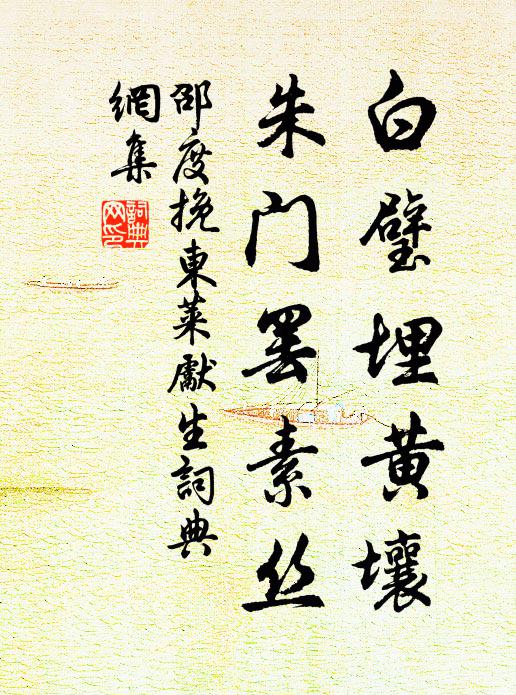 白璧埋黄壤
朱门罢素丝
邵度挽東萊獻生詞典
網集
詞典网印